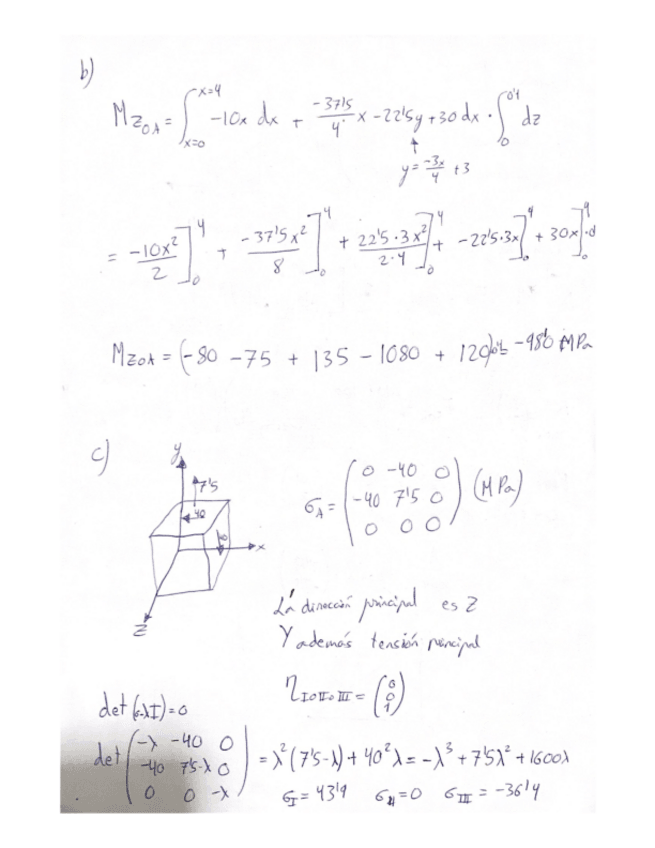 b)
M_{ZOA} = ∫_{x=0}^{x=4} -10x dx + \frac{-37'5}{4} x - 22'5y + 30 dx · ∫_0^{0'4} dz
y = \frac{-3x}{4} + 3
= \frac{-10x^2}{2}]_0^4 + \frac{-37'5x^2}{8}]_0^4 + \frac{22'5·3x^2}{2·4}]_0^4 + -22'5·3x]_0^4 + 30x]_0^4
M_{ZOA} = (-80 -75 + 135 - 1080 + 120) MPa
c)
y
7'5
40
x
z
σ_A = \begin{pmatrix} 0 & -40 & 0 \\ -40 & 7'5 & 0 \\ 0 & 0 & 0 \end{pmatrix} (MPa)
La dirección principal es Z
Y además tensión principal
η_{I o II o III} = \begin{pmatrix} 0 \\ 0 \\ 1 \end{pmatrix}
det(σ-λI)=0
det \begin{pmatrix} -λ & -40 & 0 \\ -40 & 7'5-λ & 0 \\ 0 & 0 & -λ \end{pmatrix} = λ^2(7'5-λ) + 40^2λ = -λ^3 + 7'5λ^2 + 1600λ
σ_I = 43'9 σ_{II} = 0 σ_{III} = -36'4